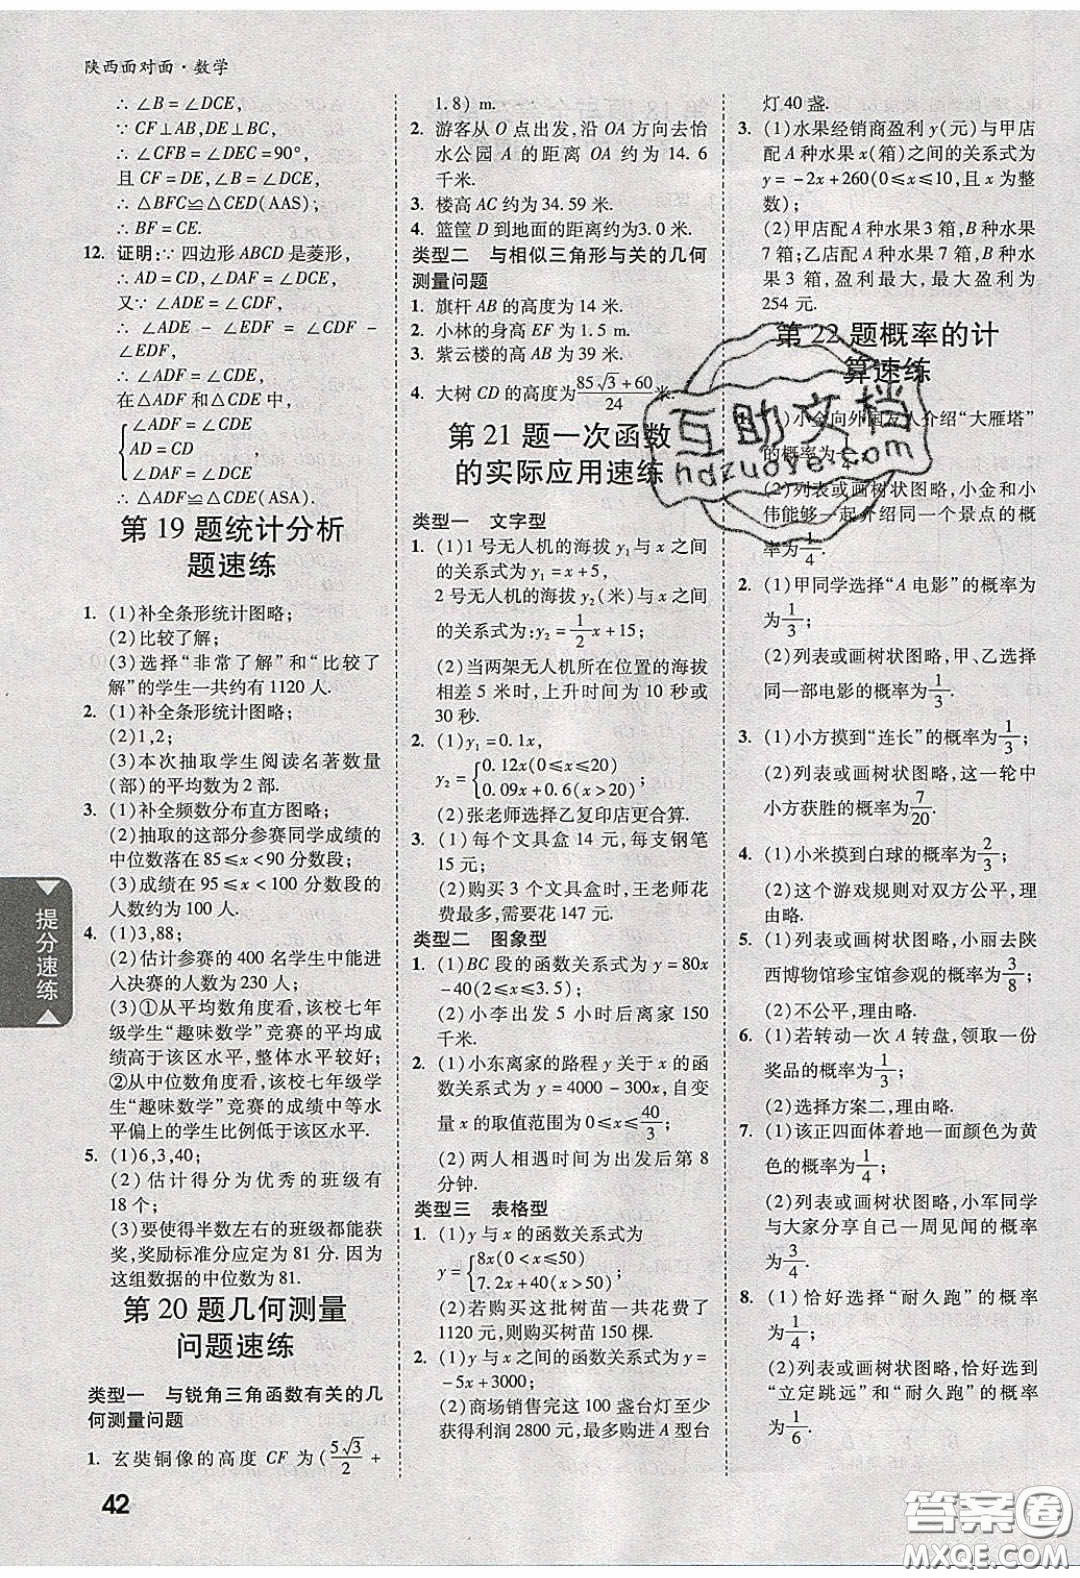 陕西面对面·数学
∴ ∠B = ∠DCE,
∵ CF⊥AB,DE⊥BC,
∴ ∠CFB = ∠DEC = 90°,
且 CF = DE,∠B = ∠DCE,
∴ △BFC≌△CED(AAS),
∴ BF = CE.
12. 证明:∵ 四边形 ABCD 是菱形,
∴ AD = CD,∠ADE = ∠CDF,
又∵ ∠ADE = ∠CDF,
∴ ∠ADE − ∠EDF = ∠CDF −
∠EDF,
∴ ∠ADF = ∠CDE,
在 △ADF 和 △CDE 中,
∠ADF = ∠CDE
AD = CD ,
∠DAF = ∠DCE
∴ △ADF≌△CDE(ASA).
第 19 题统计分析
题速练
1. (1)补全条形统计图略;
(2)比较了解;
(3)选择“非常了解”和“比较了
解”的学生一共约有 1120 人.
2. (1)补全条形统计图略;
(2)1,2;
(3)本次抽取学生阅读名著数量
(部)的平均数为 2 部.
3. (1)补全频数分布直方图略;
(2)抽取的这部分参赛同学成绩的
中位数落在 85≤x<90 分数段;
(3)成绩在 95≤x<100 分数段的
人数约为 100 人.
4. (1)3,88;
(2)估计参赛的 400 名学生中能进
入决赛的人数为 230 人;
(3)①从平均数角度看,该校七年
级学生“趣味数学”竞赛的平均成
绩高于该区水平,整体水平较好;
②从中位数角度看,该校七年级学
生“趣味数学”竞赛的成绩中等水
平偏上的学生比例低于该区水平.
5. (1)6,3,40;
(2)估计得分为优秀的班级有
18 个;
(3)要使得半数左右的班级都能获
奖,奖励标准分应定为 81 分. 因为
这组数据的中位数为 81.
第 20 题几何测量
问题速练
类型一 与锐角三角函数有关的几
何测量问题
1. 玄奘铜像的高度 CF 为 (5√3/2 +
1.8) m.
2. 游客从 O 点出发,沿 OA 方向去怡
水公园 A 的距离 OA 约为 14.6
千米.
3. 楼高 AC 约为 34.59 米.
4. 篮筐 D 到地面的距离约为3.0 米.
类型二 与相似三角形与关的几何
测量问题
1. 旗杆 AB 的高度为 14 米.
2. 小林的身高 EF 为 1.5 m.
3. 紫云楼的高 AB 为 39 米.
4. 大树 CD 的高度为(85√3+60)/24 米.
第 21 题一次函数
的实际应用速练
类型一 文字型
1. (1)1 号无人机的海拔 y₁与 x 之间
的关系式为 y₁ = x + 5,
2 号无人机的海拔 y₂(米)与 x 之间
的关系式为:y₂ = 1/2 x + 15;
(2)当两架无人机所在位置的海拔
相差 5 米时,上升时间为 10 秒或
30 秒.
2. (1)y₁ = 0.1x,
y₂ = 0.12x(0≤x≤20)
0.09x + 0.6(x>20);
(2)张老师选择乙复印店更合算.
3. (1)每个文具盒 14 元,每支钢笔
15 元;
(2)购买 3 个文具盒时,王老师花
费最多,需要花 147 元.
类型二 图象型
1. (1)BC 段的函数关系式为 y = 80x
−40(2≤x≤3.5);
(2)小李出发 5 小时后离家 150
千米.
2. (1)小东离家的路程 y 关于 x 的函
数关系式为 y = 4000 − 300x,自变
量 x 的取值范围为 0≤x≤40/3;
(2)两人相遇时间为出发后第 8
分钟.
类型三 表格型
1. (1)y 与 x 的函数关系式为
y = 8x(0<x≤50)
7.2x + 40(x>50);
(2)若购买这批树苗一共花费了
1120 元,则购买树苗 150 棵.
2. (1)y 与 x 之间的函数关系式为 y =
−5x + 3000;
(2)商场销售完这 100 盏台灯至少
获得利润 2800 元,最多购进 A 型台
灯 40 盏.
3. (1)水果经销商盈利 y(元)与甲店
配 A 种水果 x(箱)之间的关系式为
y = −2x + 260(0≤x≤10,且 x 为整
数);
(2)甲店配 A 种水果 3 箱,B 种水果
7 箱;乙店配 A 种水果 7 箱,B 种水
果 3 箱,盈利最大,最大盈利为
254 元.
第 22 题概率的计
算速练
1. (1)小金向外国友人介绍“大雁塔”
的概率为1/4;
(2)列表或画树状图略,小金和小
伟能够一起介绍同一个景点的概
率为1/4.
2. (1)甲同学选择“A 电影”的概率为
为1/3;
(2)列表或画树状图略,甲、乙选择
同一部电影的概率为1/3.
3. (1)小方摸到“连长”的概率为1/3;
(2)列表或画树状图略,这一轮中
小方获胜的概率为7/20.
4. (1)小米摸到白球的概率为2/3;
(2)这个游戏规则对双方公平,理
由略.
5. (1)列表或画树状图略,小丽去陕
西博物馆珍宝馆参观的概率为3/8;
(2)不公平,理由略.
6. (1)若转动一次 A 转盘,领取一份
奖品的概率为1/3;
(2)选择方案二,理由略.
7. (1)该正四面体着地一面颜色为黄
色的概率为1/4;
(2)列表或画树状图略,小军同学
与大家分享自己一周见闻的概率
为3/4.
8. (1)恰好选择“耐久跑”的概率
为1/4;
(2)列表或画树状图略,恰好选到
“立定跳远”和“耐久跑”的概率
为1/6.
提分速练
42
互助文档
hdzuoye.com
答案圈
MXQE.COM